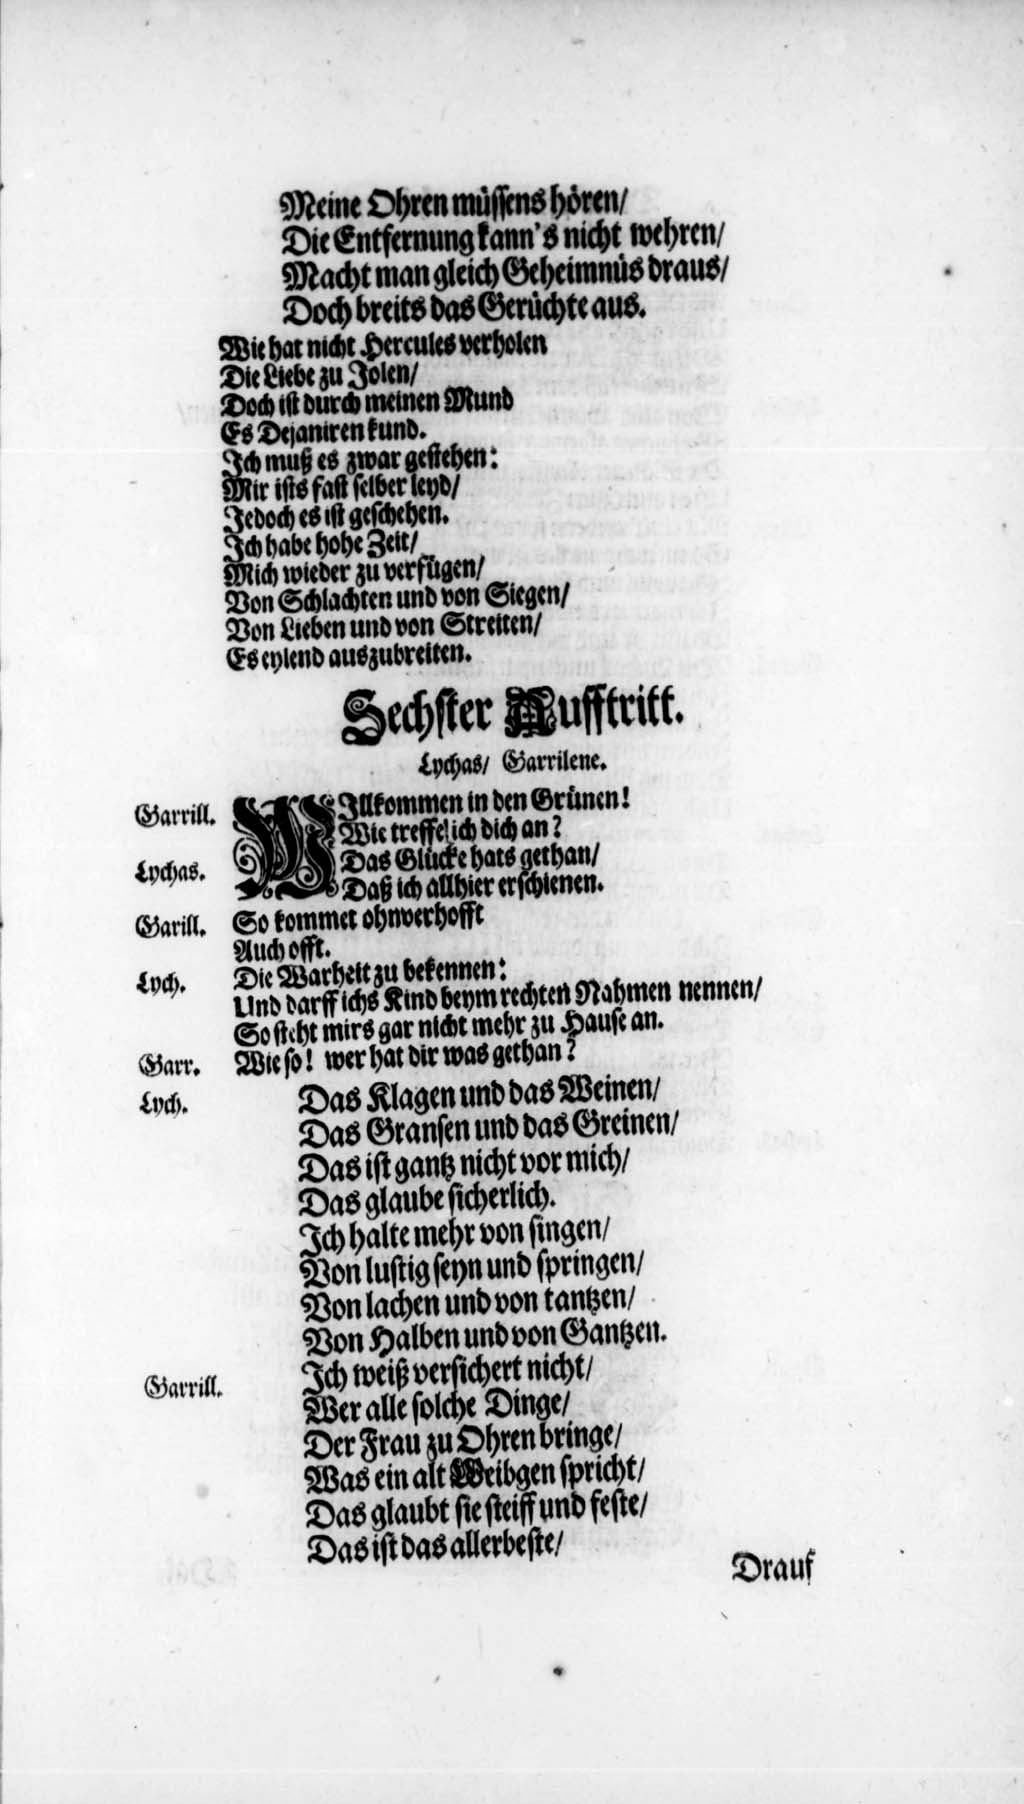 Meine Ohren müssens hören/
Die Entfernung kann's nicht wehren/
Macht man gleich Geheimnüs draus/
Doch breits das Gerüchte aus.
Wie hat nicht Hercules verholen
Die Liebe zu Jolen/
Doch ist durch meinen Mund
Es Dejaniren kund.
Ich muß es zwar gestehen:
Mir ists fast selber leyd/
Jedoch es ist geschehen.
Ich habe hohe Zeit/
Mich wieder zu verfügen/
Von Schlachten und von Siegen/
Von Lieben und von Streiten/
Es eylend auszubreiten.
Sechster Aufftritt.
Lychas/ Garrilene.
Garrill. WIllkommen in den Grünen!
Wie treffe ich dich an?
Lychas. Das Glücke hats gethan/
Daß ich allhier erschienen.
Garill. So kommet ohnverhofft
Auch offt.
Lych. Die Warheit zu bekennen:
Und darff ichs Kind beym rechten Nahmen nennen/
So steht mirs gar nicht mehr zu Hause an.
Garr. Wie so! wer hat dir was gethan?
Lych. Das Klagen und das Weinen/
Das Gransen und das Greinen/
Das ist gantz nicht vor mich/
Das glaube sicherlich.
Ich halte mehr von singen/
Von lustig seyn und springen/
Von lachen und von tantzen/
Von Halben und von Gantzen.
Garrill. Ich weiß versichert nicht/
Wer alle solche Dinge/
Der Frau zu Ohren bringe/
Was ein alt Weibgen spricht/
Das glaubt sie steiff und feste/
Das ist das allerbeste/
Drauf